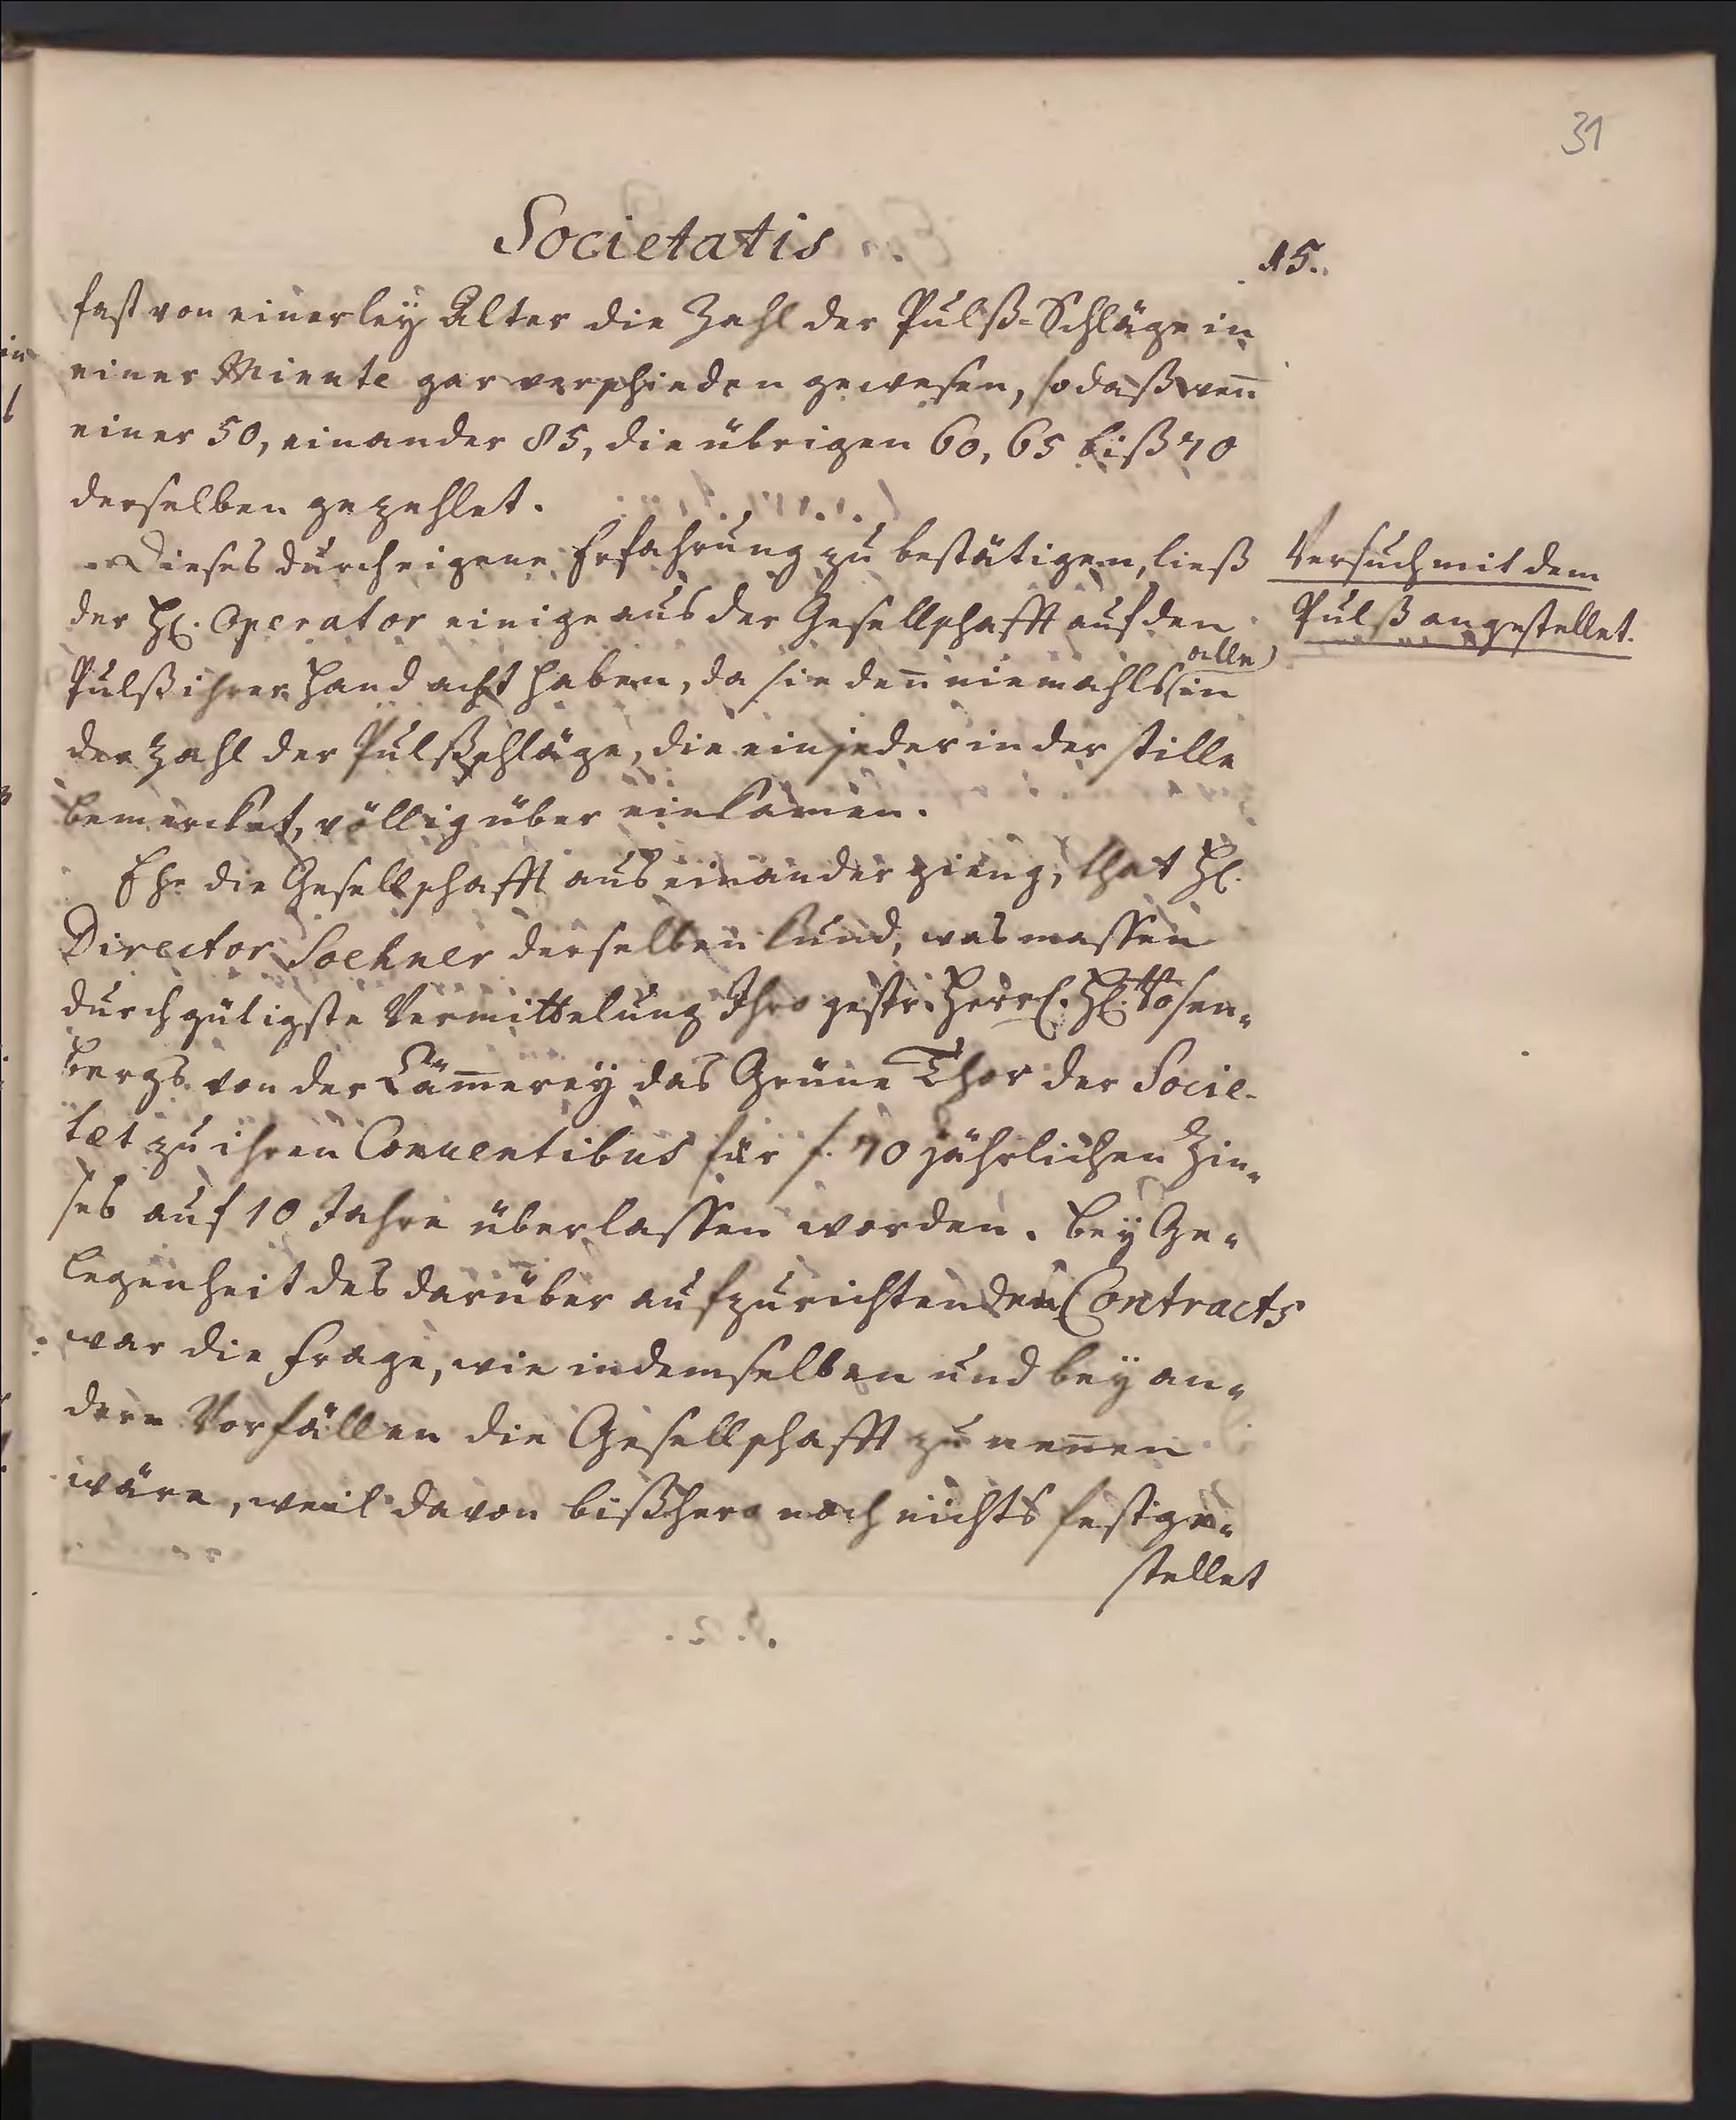 31
Societatis
15.
fast von einerley Alter die Zahl der Pulß-Schläge in
einer Minute gar verschieden gewesen, so daß weñ
einer 50, ein ander 85, die übrigen 60, 65 biß 70
derselben gezehlet.
Dieses durch eigene Erfahrung zu bestätigen, ließ
der H. Operator einige aus der Gesellschafft auf den
Pulß ihrer Hand acht haben, da sie deñ niemahls (alle) in
der Zahl der Pulßschläge, die ein jeder in der stille
bemercket, völlig über ein kamen.
Versuch mit dem
Pulß angestellet.
Ehe die Gesellschafft aus einander gieng, that H.
Director Soehner derselben kund, was massen
durch gütigste Vermittelung Ihro gestr: Herrl. H. Rosen-
bergs von der Cäm̄erey das Grüne Thor der Socie-
tæt zu ihren Conventibus für f. 70 jährlichen Zin-
ses auf 10 Jahre überlassen worden. Bey Ge-
legenheit des darüber aufzurichtenden Contracts
war die Frage, wie in demselben und bey an-
dern Vorfällen die Gesellschafft zu neñen
wäre, weil davon bißhero noch nichts festge-
stellet